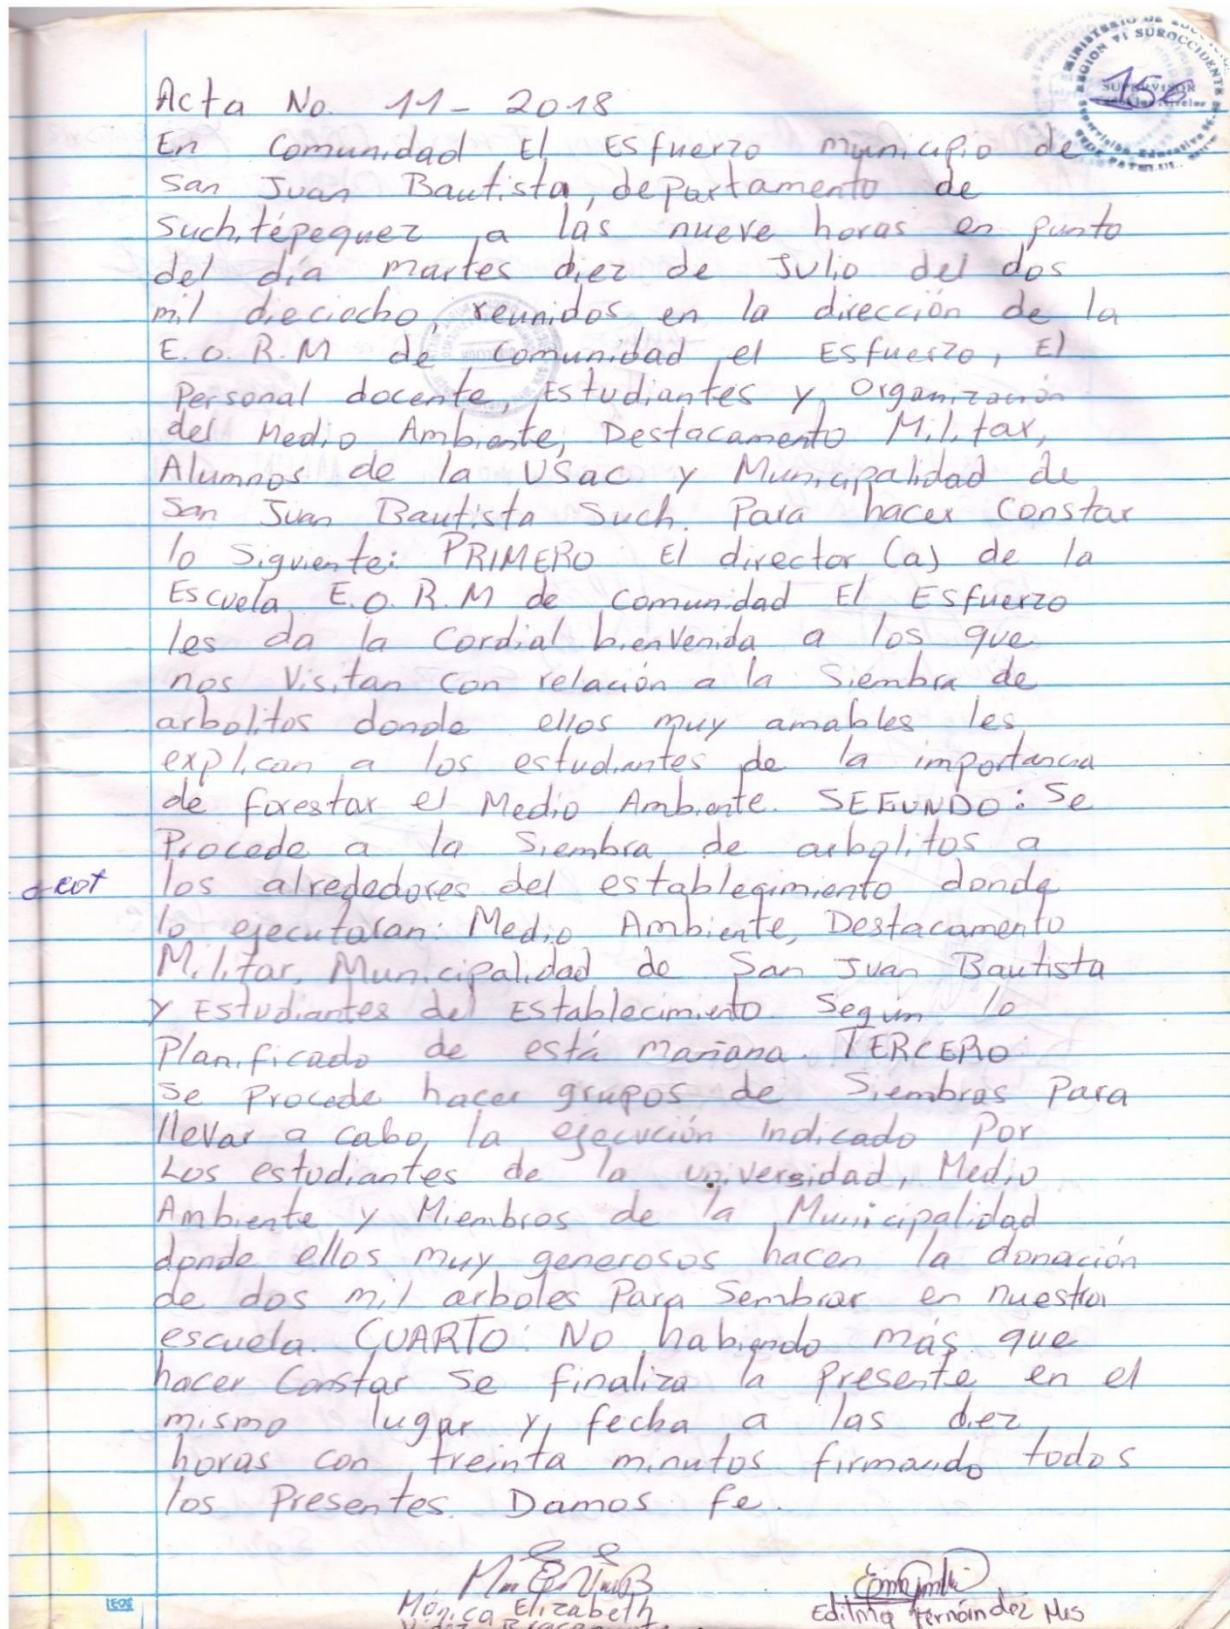 MINISTERIO DE
REGION VI SUROCCIDENTE
SUPERVISOR
156
Acta No. 11- 2018
En Comunidad El Esfuerzo municipio de
San Juan Bautista, departamento de
Suchitépequez a las nueve horas en punto
del día martes diez de Julio del dos
mil dieciocho, reunidos en la dirección de la
E.O.R.M de Comunidad el Esfuerzo, El
Personal docente, Estudiantes y Organización
del Medio Ambiente, Destacamento Militar,
Alumnos de la USac y Municipalidad de
San Juan Bautista Such. Para hacer Constar
lo Siguiente: PRIMERO: El director (a) de la
Escuela E.O.R.M de Comunidad El Esfuerzo
les da la Cordial bienvenida a los que
nos Visitan con relación a la Siembra de
arbolitos donde ellos muy amables les
explican a los estudiantes de la importancia
de forestar el Medio Ambiente. SEGUNDO: Se
Procede a la Siembra de arbolitos a
los alrededores del establecimiento donde
lo ejecutaran: Medio Ambiente, Destacamento
Militar, Municipalidad de San Juan Bautista
y Estudiantes del Establecimiento Según lo
Planificado de está mañana. TERCERO:
Se Procede hacer grupos de Siembras Para
llevar a cabo, la ejecución Indicado Por
Los estudiantes de la universidad, Medio
Ambiente y Miembros de la Municipalidad
donde ellos muy generosos hacen la donación
de dos mil arboles Para Sembrar en nuestra
escuela. CUARTO: No habiendo más que
hacer Constar se finaliza la Presente en el
mismo lugar y fecha a las diez
horas con treinta minutos firmando todos
los Presentes. Damos fe.
Mónica Elizabeth
Editma Fernández Mis
LEOS